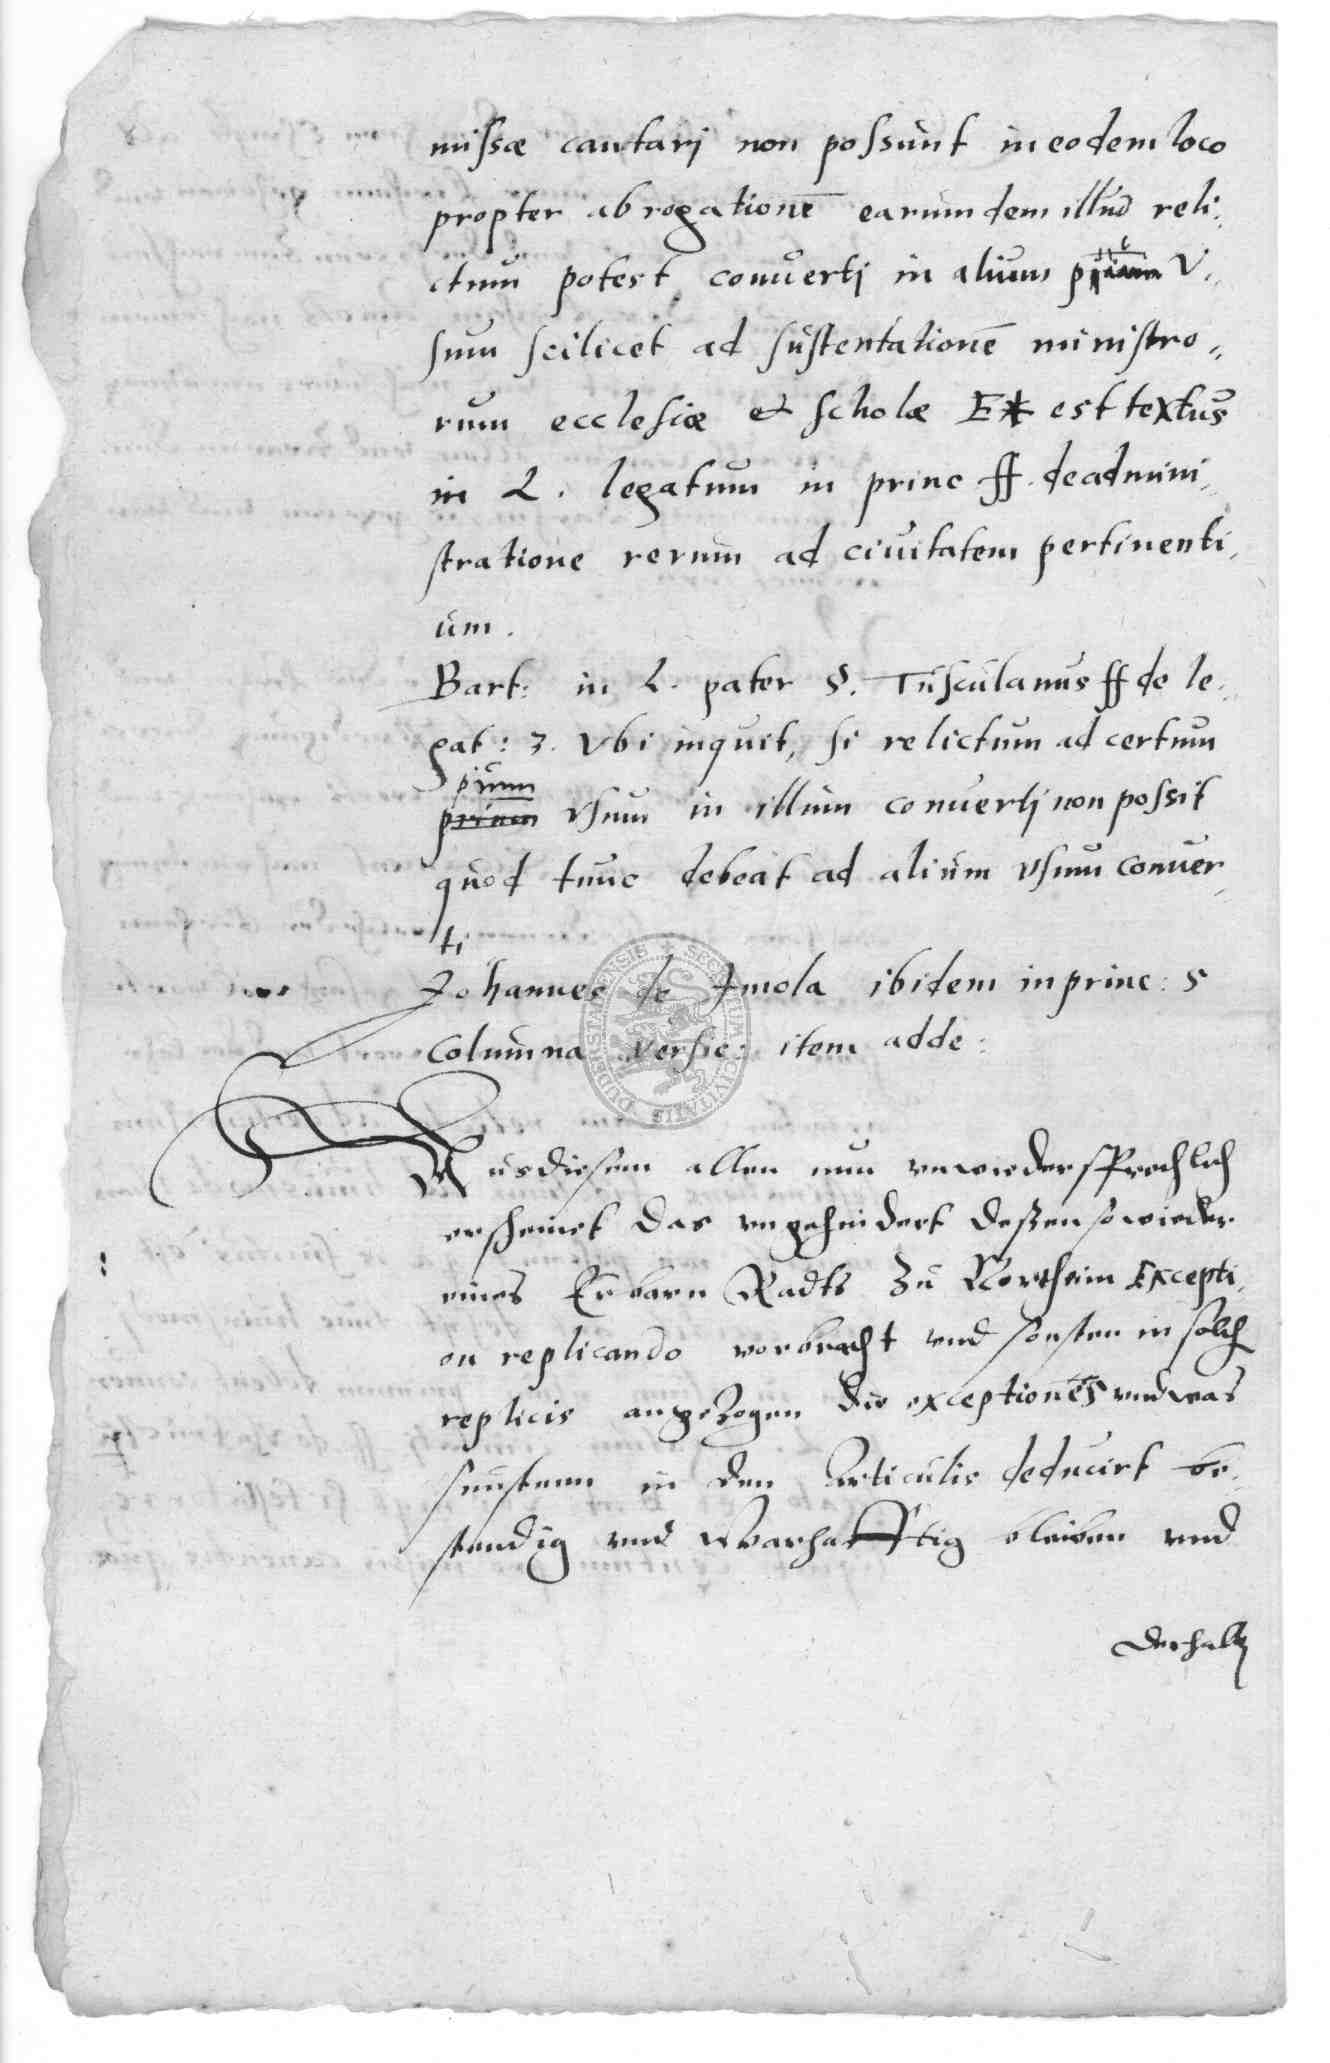 missæ cantarj non possunt in eodem loco
propter abrogationē earumdem illud reli:
ctum potest conuertj in alium pium V,,
sum scilicet ad sustentationē ministro,,
rum ecclesiæ & scholæ E* est textus
in L. legatum in princ ff. de admini,,
stratione rerum ad ciuitatem pertinenti,,
um.
Bart: in L. pater §. Tusculanus ff de le,,
gat: 3. Vbi inquit, si relictum ad certum
pium
prium vsum in illum conuertj non possit
quod tunc debeat ad alium vsum conuer,,
ti
Johannes de Imola ibidem in princ: 5
Columna versic: item adde:
Aus diesem allen nun vnwiedersprechlich
erscheinet das vngehindert deßen so wieder
eines Erbarn Radts zu Northeim Excepti,,
on replicando vorbracht vnd sonsten in solch
replicis angezogen die exceptiones vnd was
sunstenn in den Articulis deducirt be,,
stendig vnd Warhafftig bleiben vnd
derhalb
SECRETUM CIVITATIS DUDERSTADENSIS